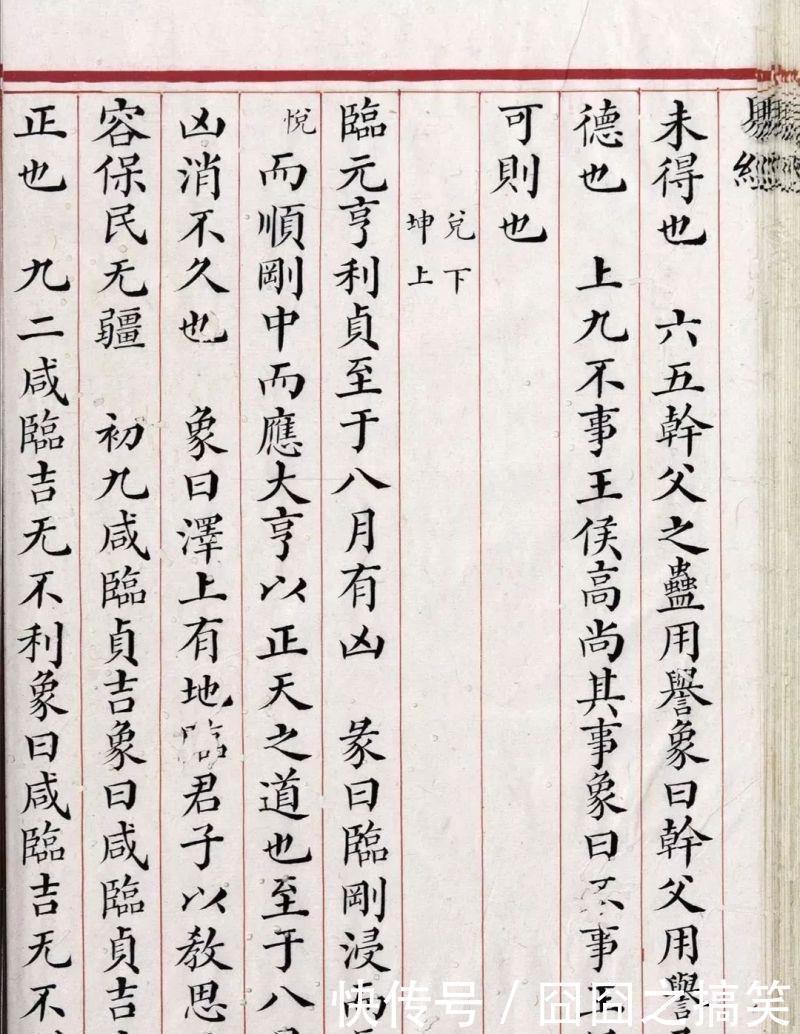 易經
未得也　六五幹父之蠱用譽象曰幹父用譽
德也　上九不事王侯高尚其事象曰不事王
可則也
兌下
坤上
臨元亨利貞至于八月有凶　彖曰臨剛浸而
悅
而順剛中而應大亨以正天之道也至于八
凶消不久也　象曰澤上有地臨君子以教思
容保民无疆　初九咸臨貞吉象曰咸臨貞吉
正也　九二咸臨吉无不利象曰咸臨吉无不
快传号 / 囧囧之搞笑